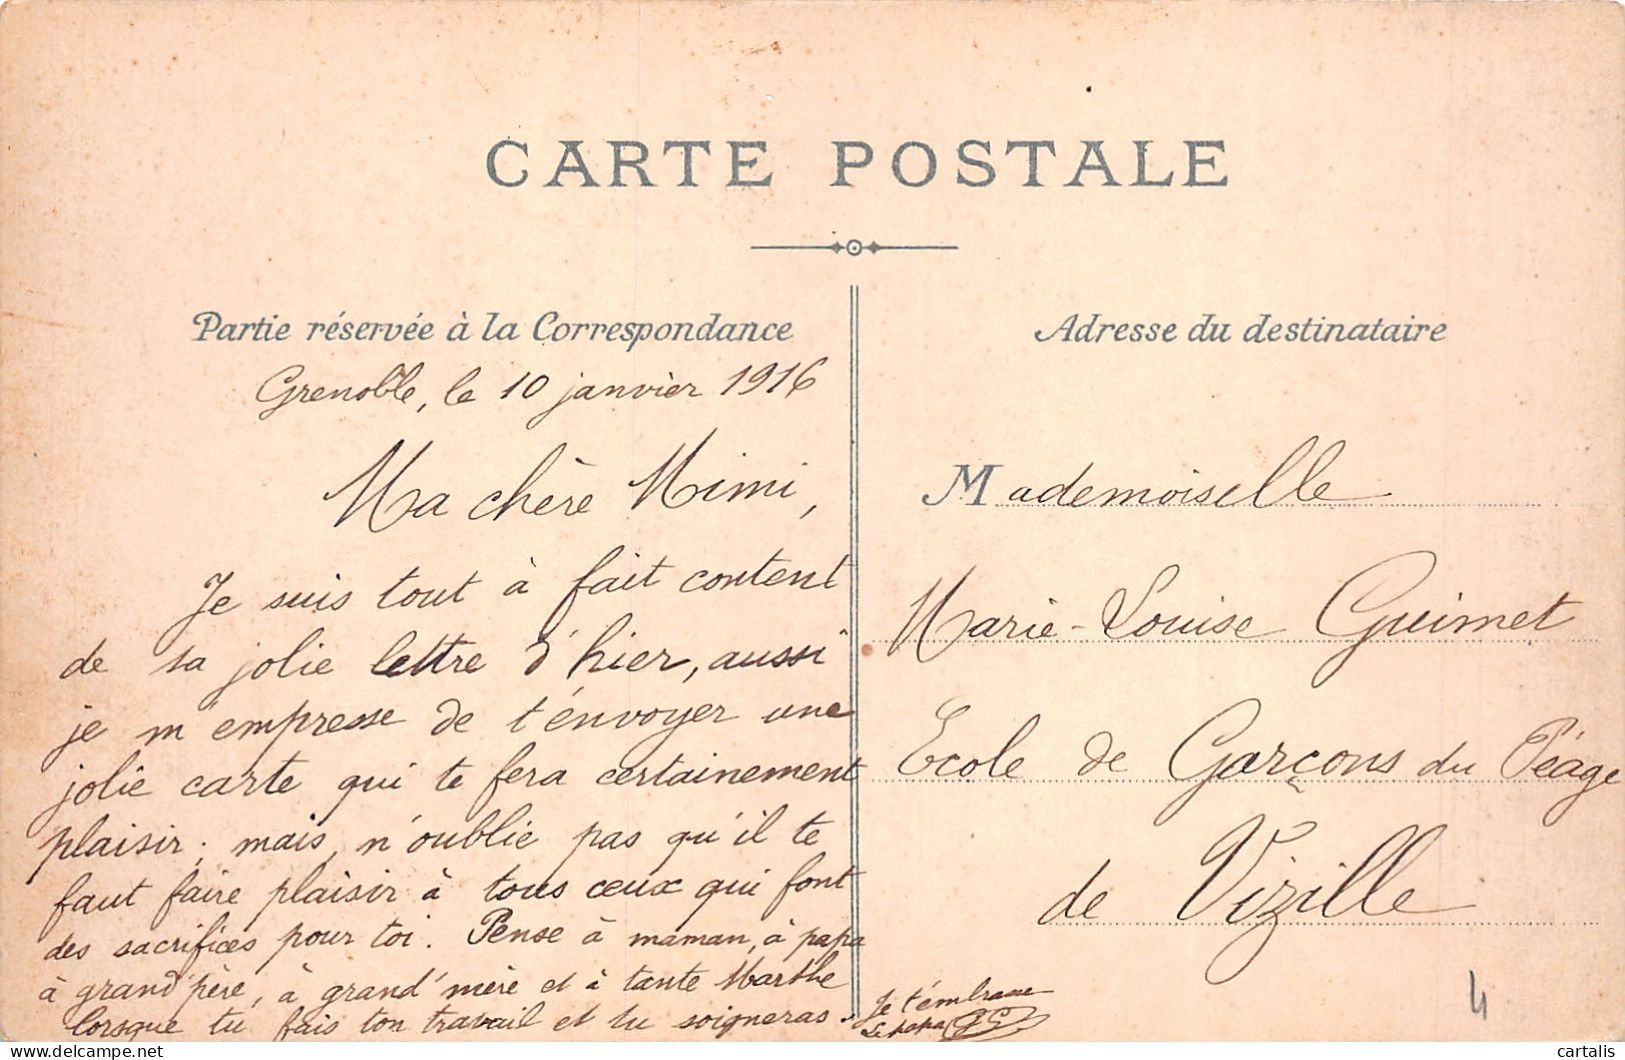 CARTE POSTALE
Partie réservée à la Correspondance
Grenoble, le 10 janvier 1916
Ma chère Mimi,
Je suis tout à fait content
de ta jolie lettre d'hier, aussi
je m'empresse de t'envoyer une
jolie carte qui te fera certainement
plaisir; mais, n'oublie pas qu'il te
faut faire plaisir à tous ceux qui font
des sacrifices pour toi. Pense à maman, à papa
à grand'père, à grand'mère et à tante Marthe
lorsque tu fais ton travail et tu soigneras.
Je t'embrasse
Le papa
Adresse du destinataire
Mademoiselle
Marie-Louise Guimet
Ecole de Garçons du Péage
de Vizille
4
delcampe.net
cartalis